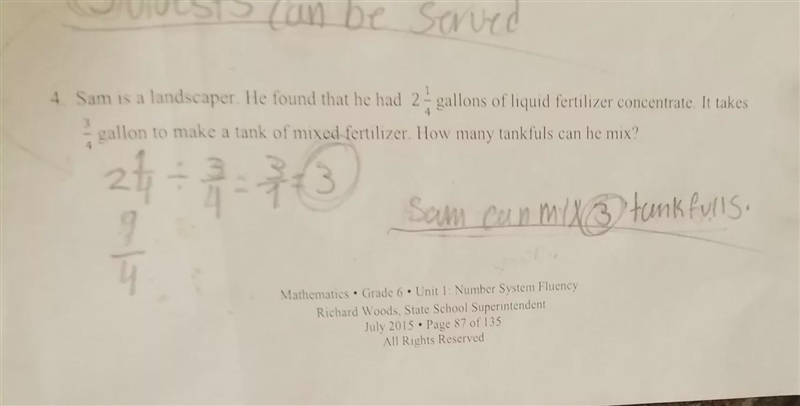 Guests can be Served
4. Sam is a landscaper. He found that he had 2 1/4 gallons of liquid fertilizer concentrate. It takes
3/4 gallon to make a tank of mixed fertilizer. How many tankfuls can he mix?
2 1/4 ÷ 3/4 = 3/1 = 3
9/4
Sam can mix 3 tankfulls.
Mathematics • Grade 6 • Unit 1: Number System Fluency
Richard Woods, State School Superintendent
July 2015 • Page 87 of 135
All Rights Reserved